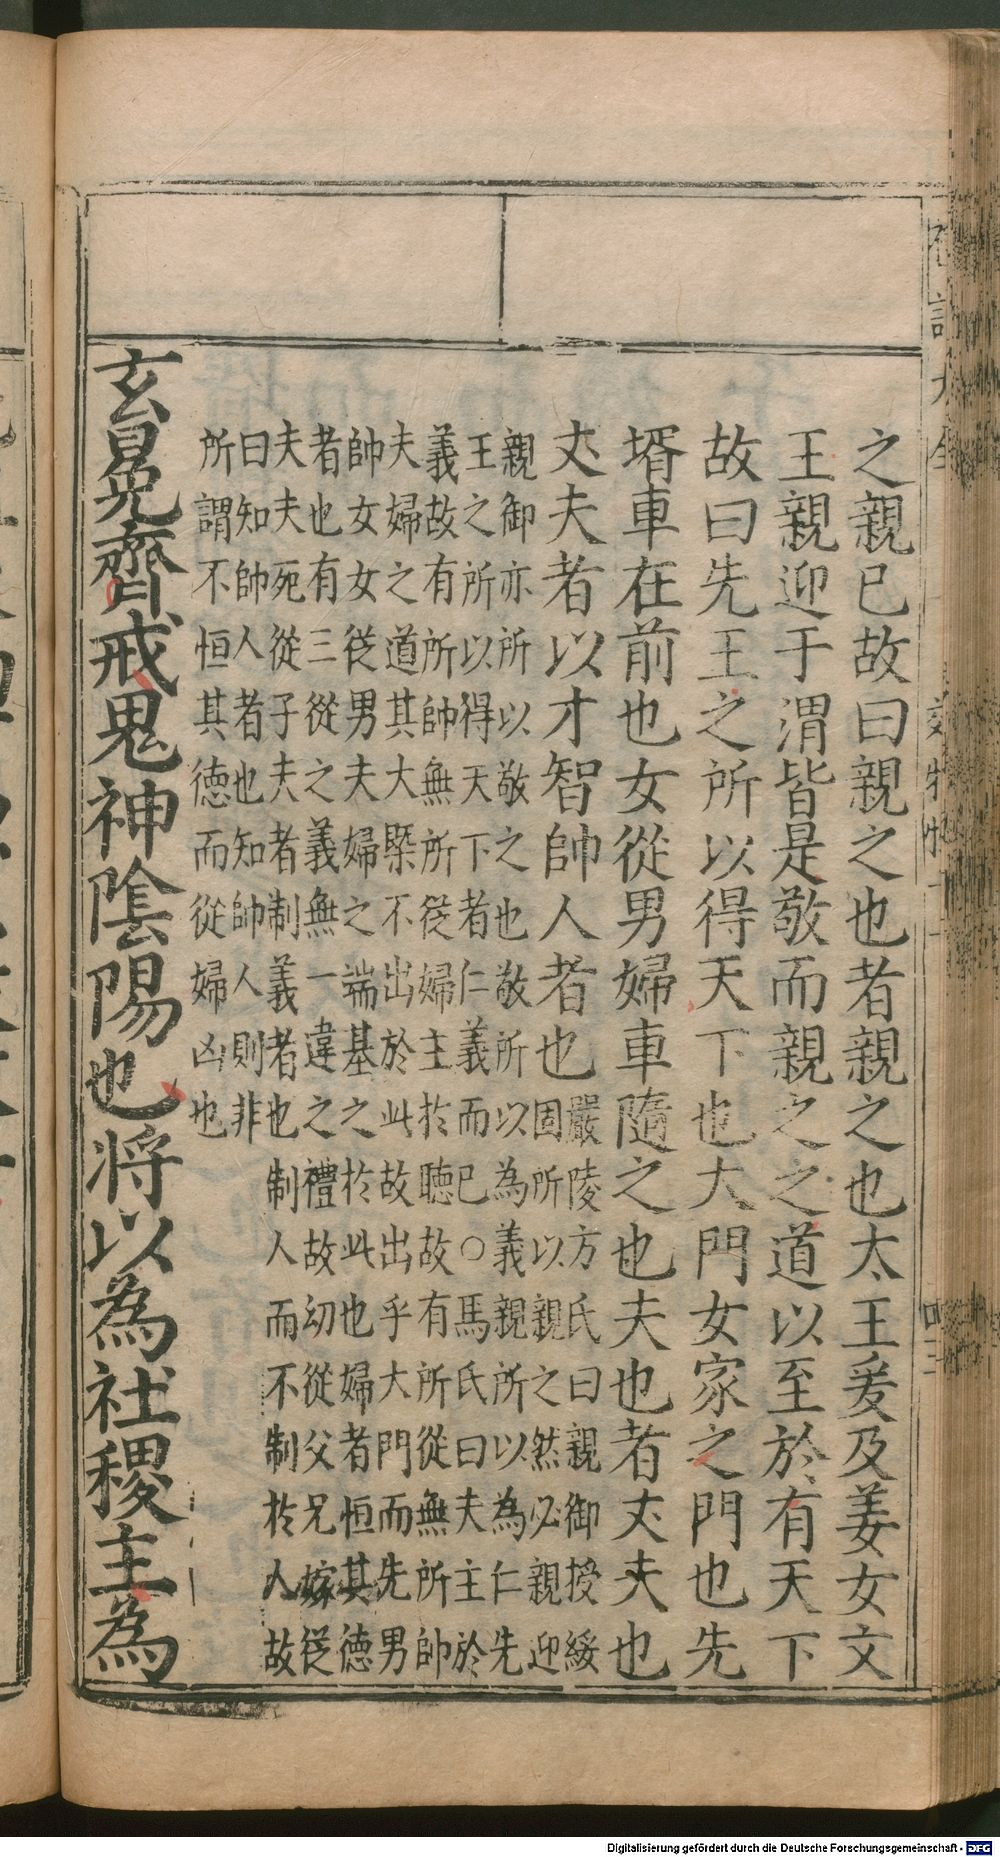 之親已故曰親之也者親之也太王爰及姜女文
王親迎于渭皆是敬而親之之道以至於有天下
故曰先王之所以得天下也大門女家之門也先
壻車在前也女從男婦車隨之也夫也者丈夫也
丈夫者以才智帥人者也嚴陵方氏曰親御授綏
固所以親之然必親迎
親御亦所以敬之也敬所以為義親所以為仁先
王之所以得天下者仁義而已○馬氏曰夫主於
義故有所帥無所從婦主於聽故有所從無所帥
夫婦之道其大槩不出於此故出乎大門而先男
帥女女從男夫婦之端基之於此也婦者恒其德
者也有三從之義無一違之禮故幼從父兄嫁從
夫夫死從子夫者制義者也制人而不制於人故
曰知帥人者也知帥人則非
所謂不恒其德而從婦凶也
玄冕齊戒鬼神陰陽也將以為社稷主為
Digitalisierung gefördert durch die Deutsche Forschungsgemeinschaft - DFG